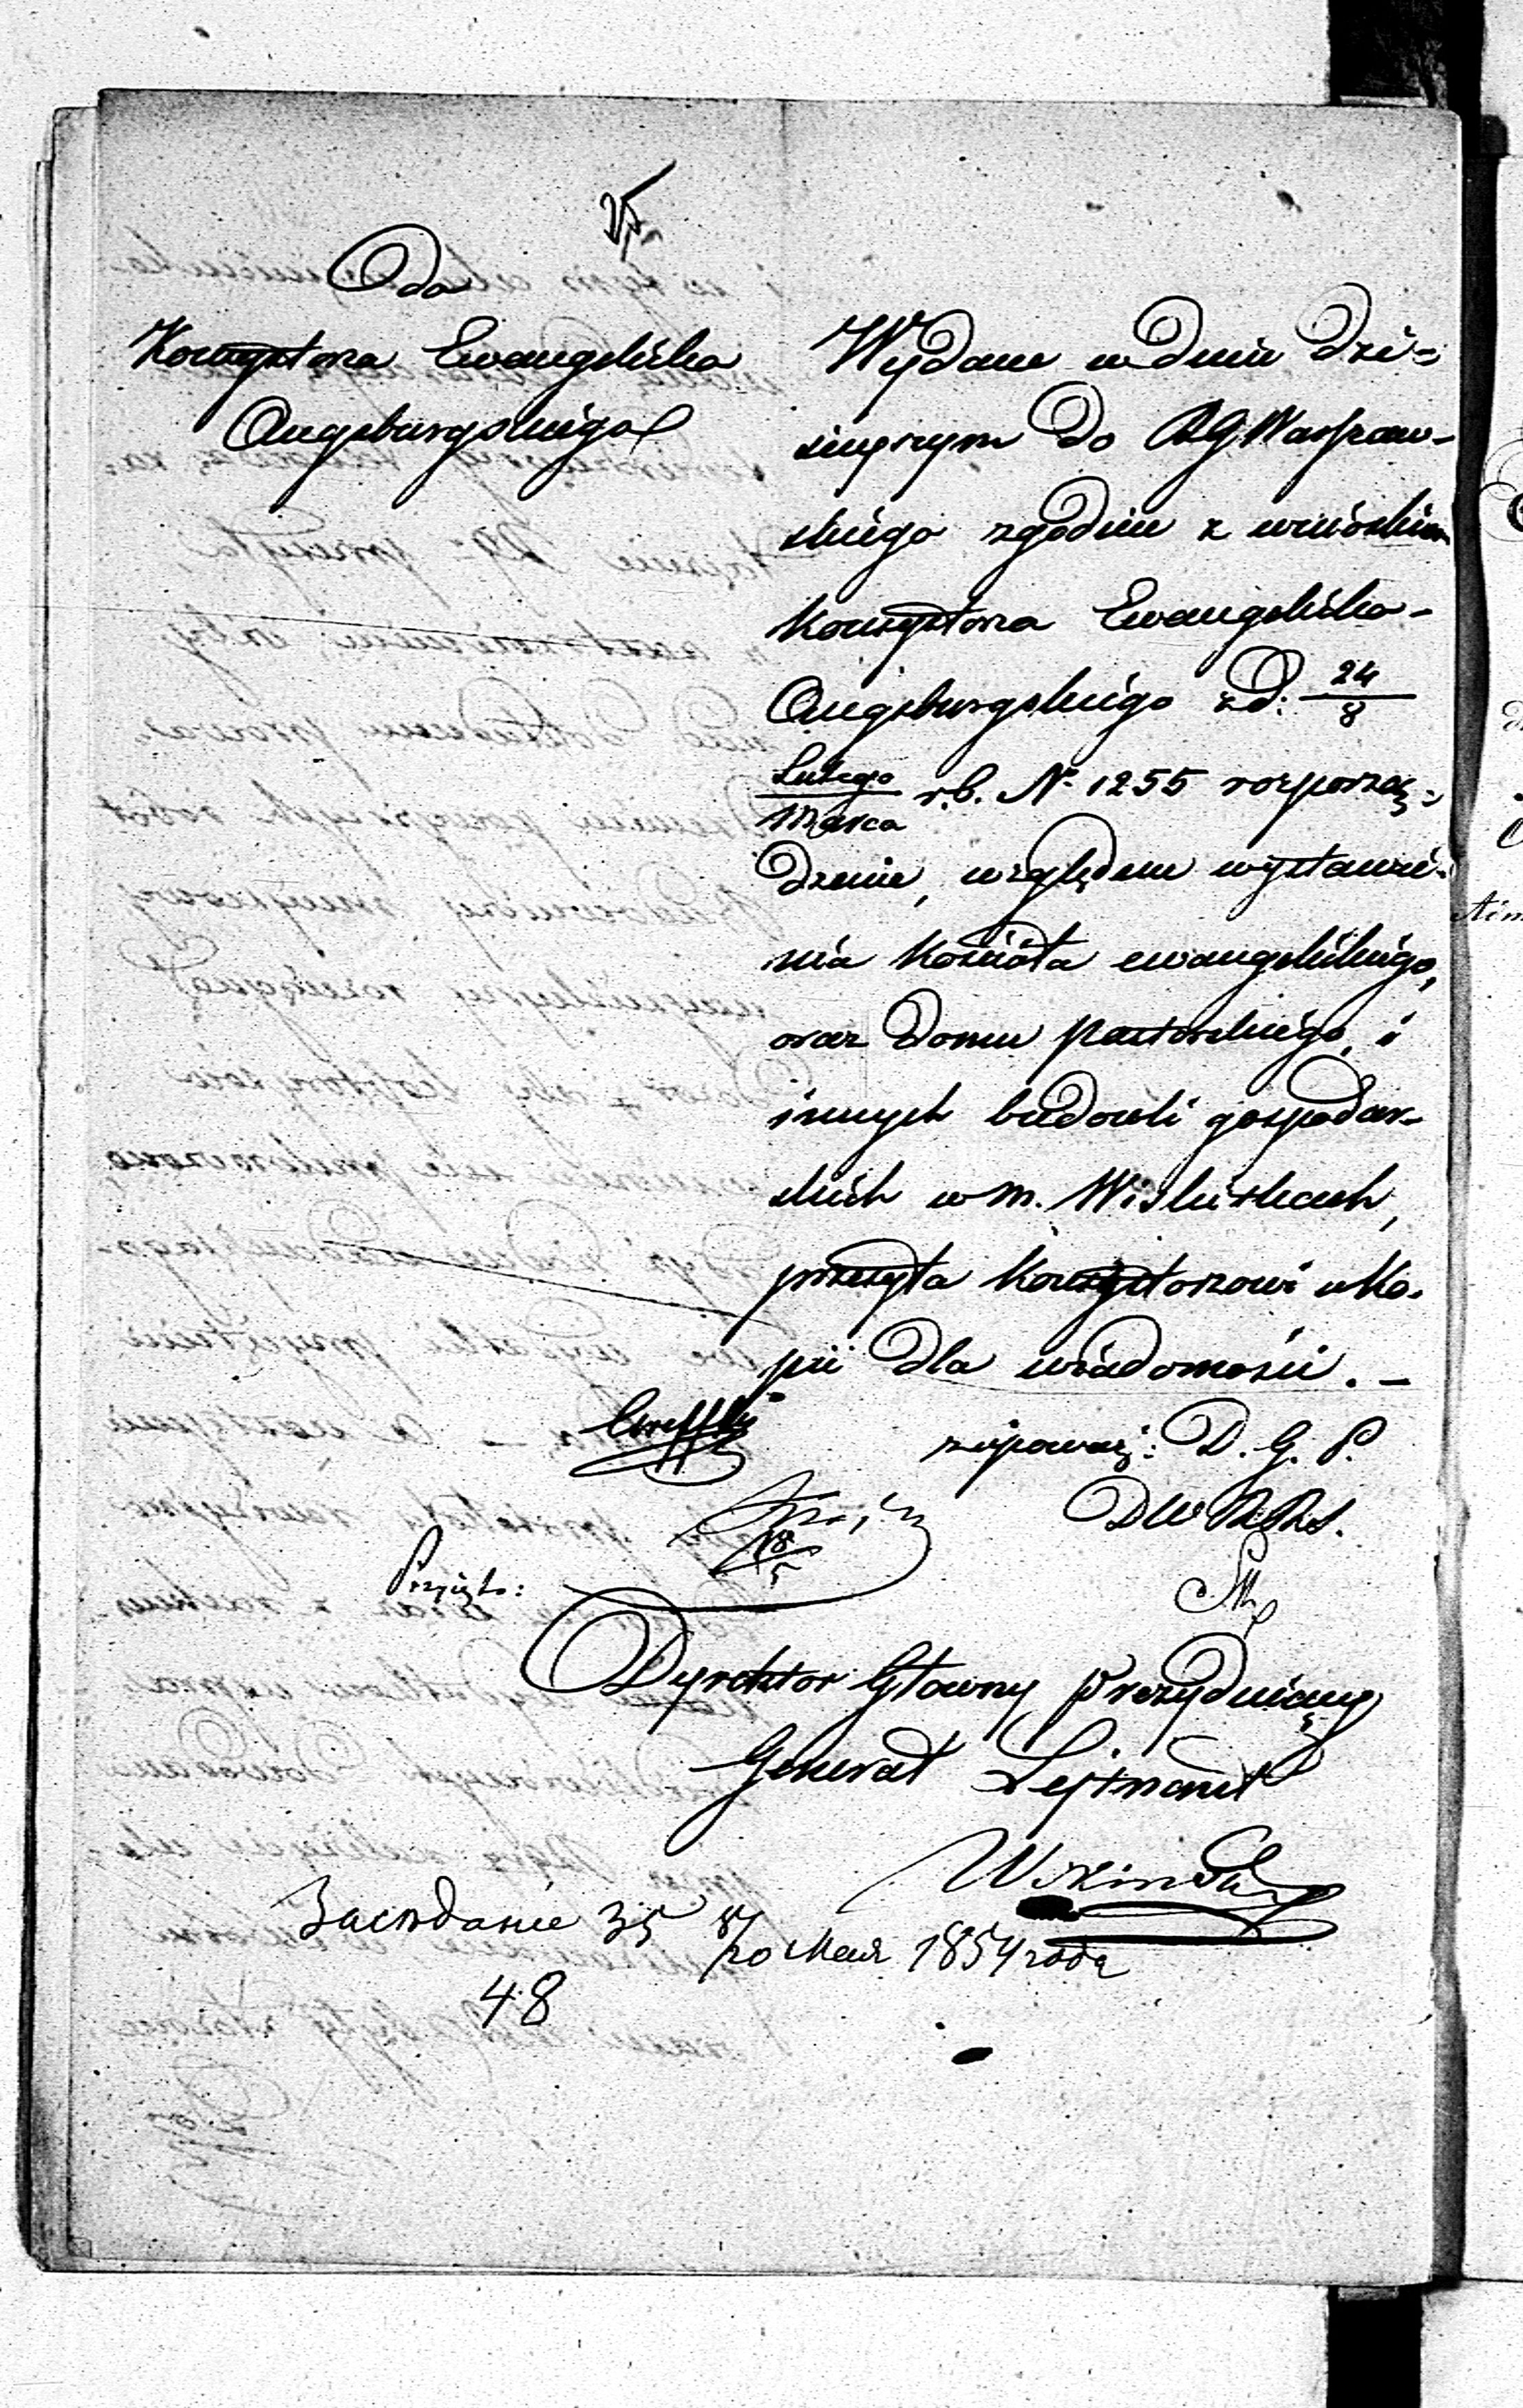 25
Do
Konsystorza Ewangelicko
Augsburgskiego
Wydane w dniu dzi=
siejszym do RGWarszaw-
skiego zgodnie z wnioskiem
Konsystorza Ewangelicko-
Augsburgskiego z d: 24/8
Lutego/Marca r.b. № 1255 rozporzą=
dzenie, względem wystawie-
nia Kościoła ewangelickiego,
oraz domu pastorskiego, i
innych budowli gospodar-
skich w m. Wiskitkach,
przesyła Konsystorzowi w Ko-
pii dla wiadomości. -
z upoważ: D. G. P.
18/5
DW
Przyięto:
Dyrektor Głowny Prezyduiący
Generał Lejtnant
Wikiński
Заседание 35 8/20 Мая 1854 года
48